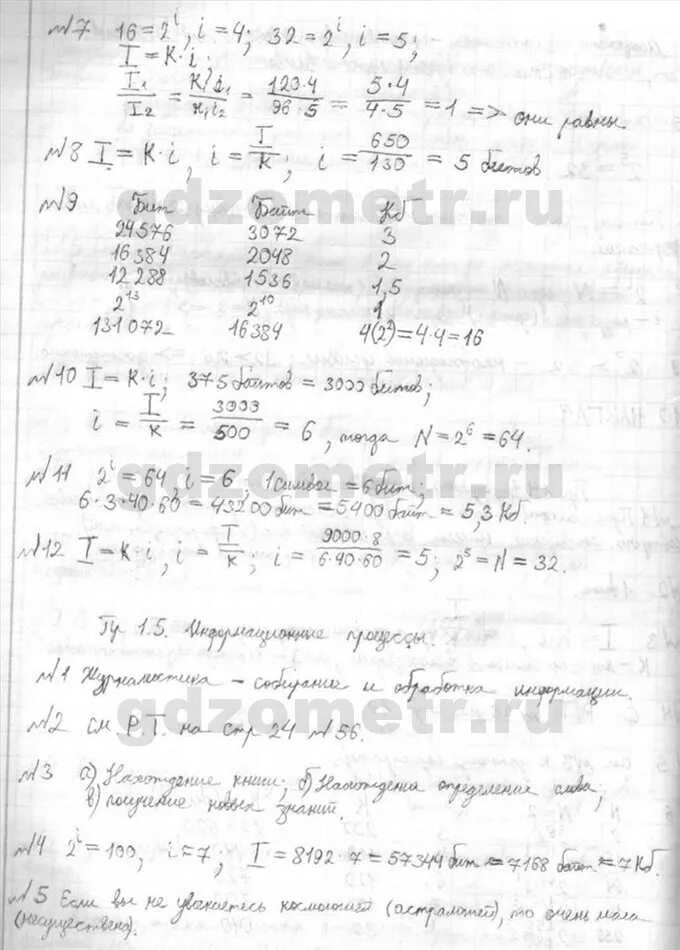 №7 16=2^i, i=4; 32=2^i, i=5;
I=K·i;
I₁/I₂ = K₁i₁/K₂i₂ = 120·4/96·5 = 5·4/4·5 = 1 => они равны.
№8 I=K·i, i=I/K; i=650/130=5 битов
gdzometr.ru
№9 Бит Байт Кб
24576 3072 3
16384 2048 2
12288 1536 1,5
2^13 2^10 1
131072 16384 4(2²)=4·4=16
№10 I=K·i; 375 байтов = 3000 битов;
i = I/K = 3000/500 = 6, тогда N=2^6=64.
№11 2^i=64, i=6; 1 символ =6 бит;
gdzometr.ru
6·3·40·60=43200 бит=5400 байт≈5,3 Кб.
№12 I=K·i, i=I/K, i=9000·8/6·40·60=5; 2^5=N=32.
Гр 1.5. Информационные процессы.
№1 Журналистика – собирание и обработка информации.
gdzometr.ru
№2 см. Р.Т. на стр 24 №56.
№3 а) Нахождение книги; б) Нахождения определение слова;
в) получение новых знаний.
№4 2^i=100, i=7; I=8192·7=57344 бит=7168 байт=7 Кб.
№5 Если вы не увлекаетесь космологией (астрологией), то очень мала
(несущественна).